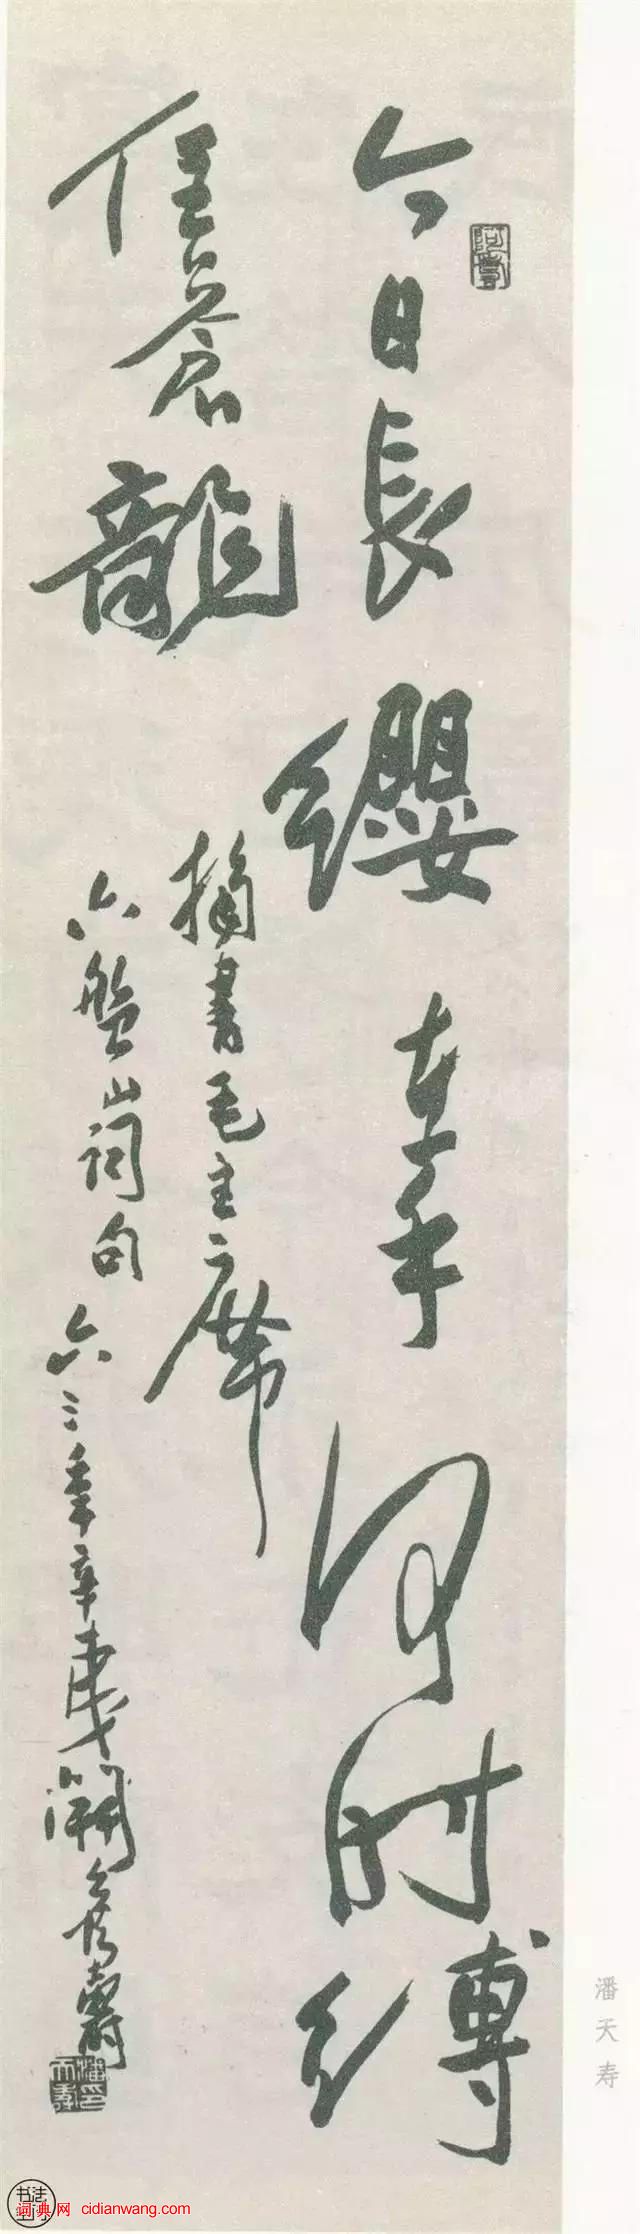 今日長纓在手何时縛
住蒼龍
摘書毛主席
六盤山詞句
六三年 壽
阿壽
潘天壽印
潘天寿
书法
词典网 cidianwang.com